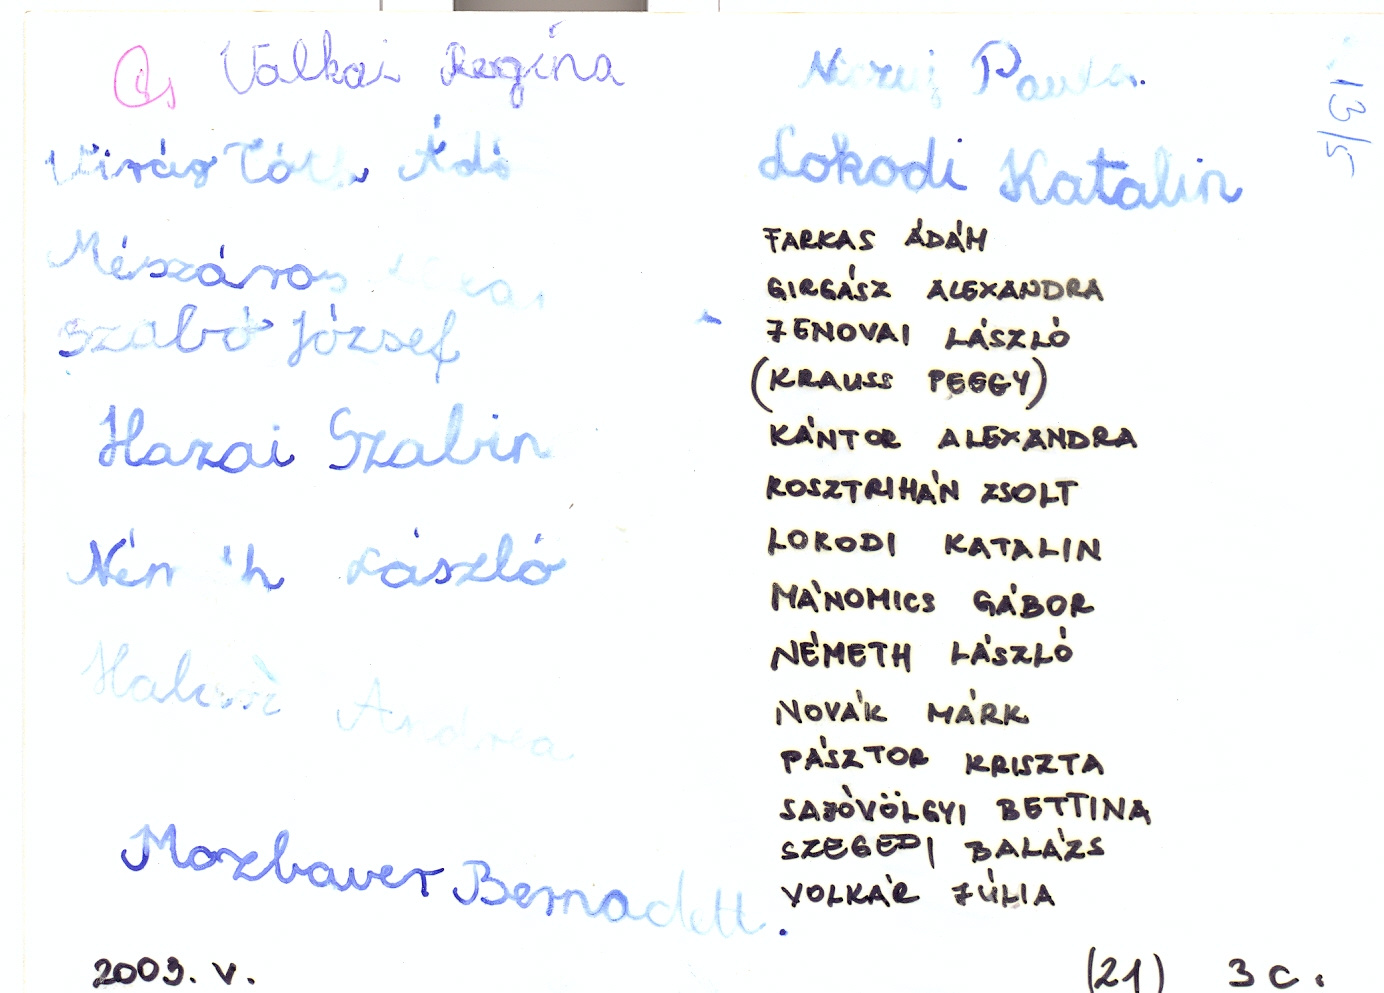 Valkai Regina
Virág Tóth Ádá
Mészáros
Szabó József
Hazai Szabin
László
Andrea
Mozbauer Bernadett.
2003. V.
Paula
Lokodi Katalin
FARKAS ÁDÁM
GIRGÁSZ ALEXANDRA
JENOVAI LÁSZLÓ
(KRAUSS PEGGY)
KÁNTOR ALEXANDRA
KOSZTRIHÁN ZSOLT
LOKODI KATALIN
MÁNOMICS GÁBOR
NÉMETH LÁSZLÓ
NOVÁK MÁRK
PÁSZTOR KRISZTA
SAJÓVÖLGYI BETTINA
SZEGEDI BALÁZS
VOLKÁR JÚLIA
(21) 3 C.
13/5